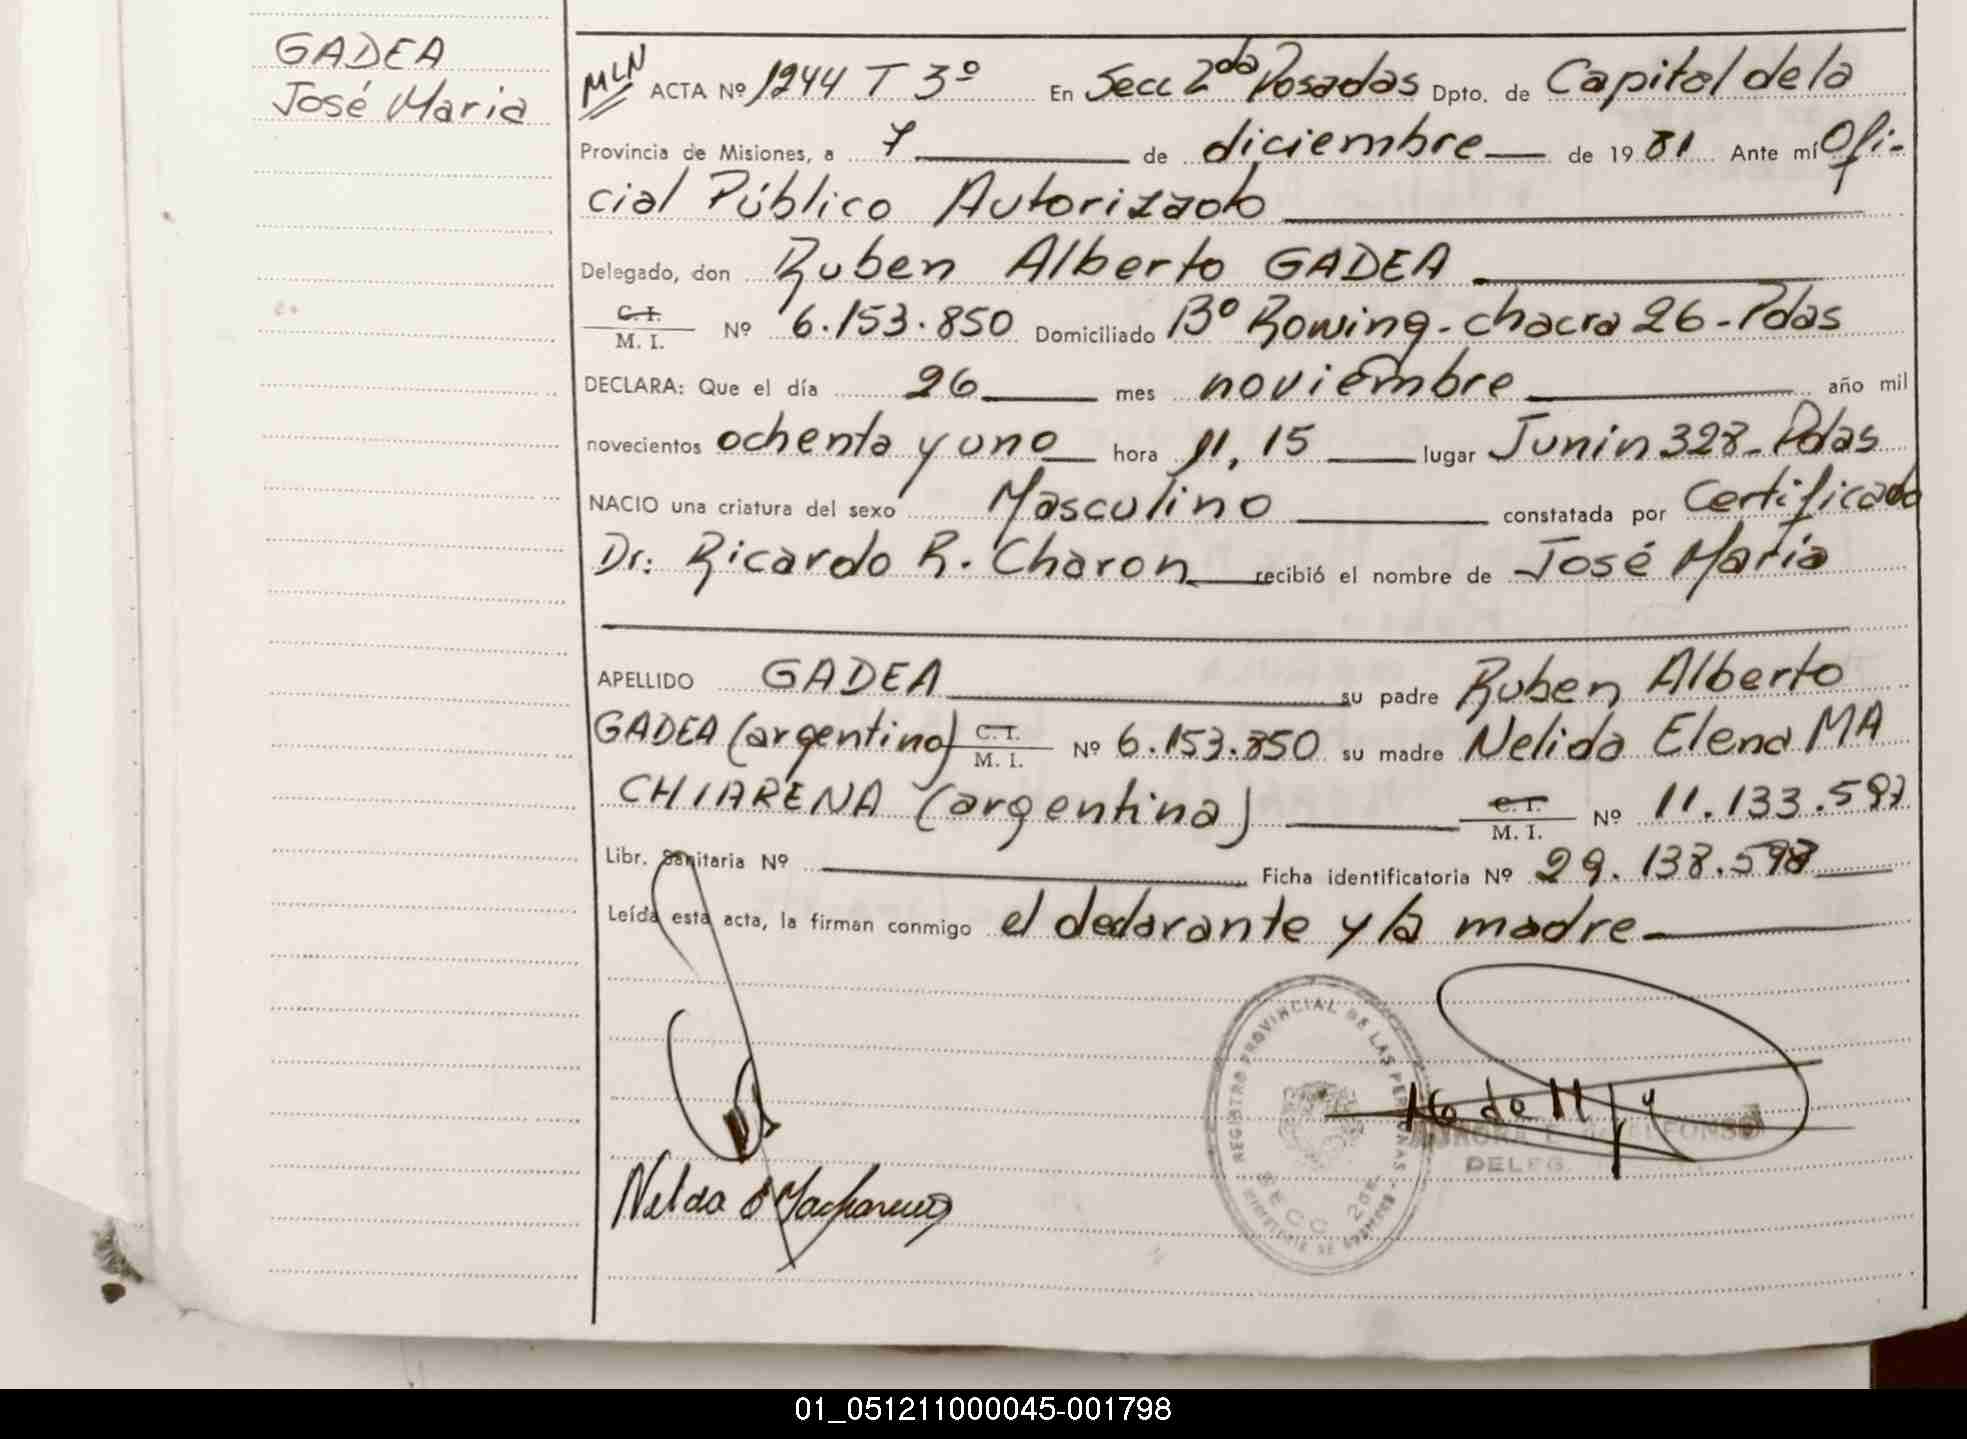 GADEA
José Maria
MLN ACTA Nº 1244 T 3º En Secc 2da Posadas Dpto. de Capital de la
Provincia de Misiones, a 7 de diciembre de 1981 Ante mí Ofi-
cial Público Autorizado
Delegado, don Ruben Alberto GADEA
C. I.
M. I. Nº 6.153.850 Domiciliado Bº Rowing - chacra 26 - Pdas
DECLARA: Que el día 26 mes noviembre año mil
novecientos ochenta y uno hora 11,15 lugar Junin 328 - Pdas
NACIO una criatura del sexo Masculino constatada por Certificado
Dr: Ricardo R. Charon recibió el nombre de José María
APELLIDO GADEA su padre Ruben Alberto
GADEA (argentino) C. I. M. I. Nº 6.153.850 su madre Nelida Elena MA
CHIARENA (argentina) C. I. M. I. Nº 11.133.597
Libr. Sanitaria Nº Ficha identificatoria Nº 29.138.598
Leída esta acta, la firman conmigo el declarante y la madre
REGISTRO PROVINCIAL DE LAS PERSONAS
SECC 2da
DELEG.
01_051211000045-001798